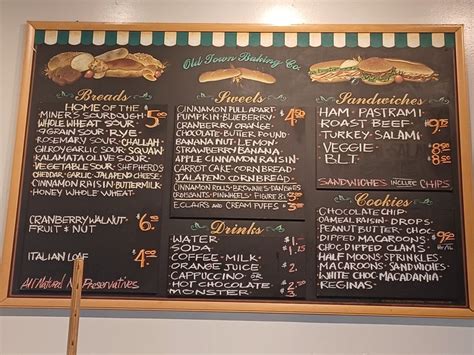 Old Town Baking Co.
Breads
HOME OF THE
MINER'S SOURDOUGH
WHOLE WHEAT SOUR
9 GRAIN SOUR · RYE
ROSEMARY SOUR · CHALLAH
GILROY GARLIC SOUR SQUAW
KALAMATA OLIVE SOUR
VEGETABLE SOUR · SHEPHERDS
CHEDDAR · GARLIC · JALAPENO CHEESE
CINNAMON RAISIN · BUTTERMILK
HONEY WHOLE WHEAT
CRANBERRY WALNUT
FRUIT & NUT
ITALIAN LOAF
All Natural No Preservatives
Sweets
CINNAMON PULL APART
PUMPKIN · BLUEBERRY
CRANBERRY ORANGE
CHOCOLATE · BUTTER POUND
BANANA NUT · LEMON
STRAWBERRY BANANA
APPLE CINNAMON RAISIN
CARROT CAKE · CORN BREAD
JALAPENO CORNBREAD
CINNAMON ROLLS · BROWNIES · DANISHES
CROISSANTS · PINWHEELS · FIGURE 8s
ECLAIRS AND CREAM PUFFS
Drinks
WATER $1.
SODA
COFFEE · MILK
ORANGE JUICE
CAPPUCCINO OR
HOT CHOCOLATE
MONSTER
Sandwiches
HAM · PASTRAMI
ROAST BEEF
TURKEY · SALAMI
VEGGIE
B.L.T.
SANDWICHES INCLUDE CHIPS
Cookies
CHOCOLATE CHIP
OATMEAL RAISIN · DROPS
PEANUT BUTTER · CHOC
DIPPED MACAROONS
CHOC DIPPED CLAMS
HALF MOONS · SPRINKLES
MACAROONS · SANDWICHES
WHITE CHOC · MACADAMIA
REGINAS